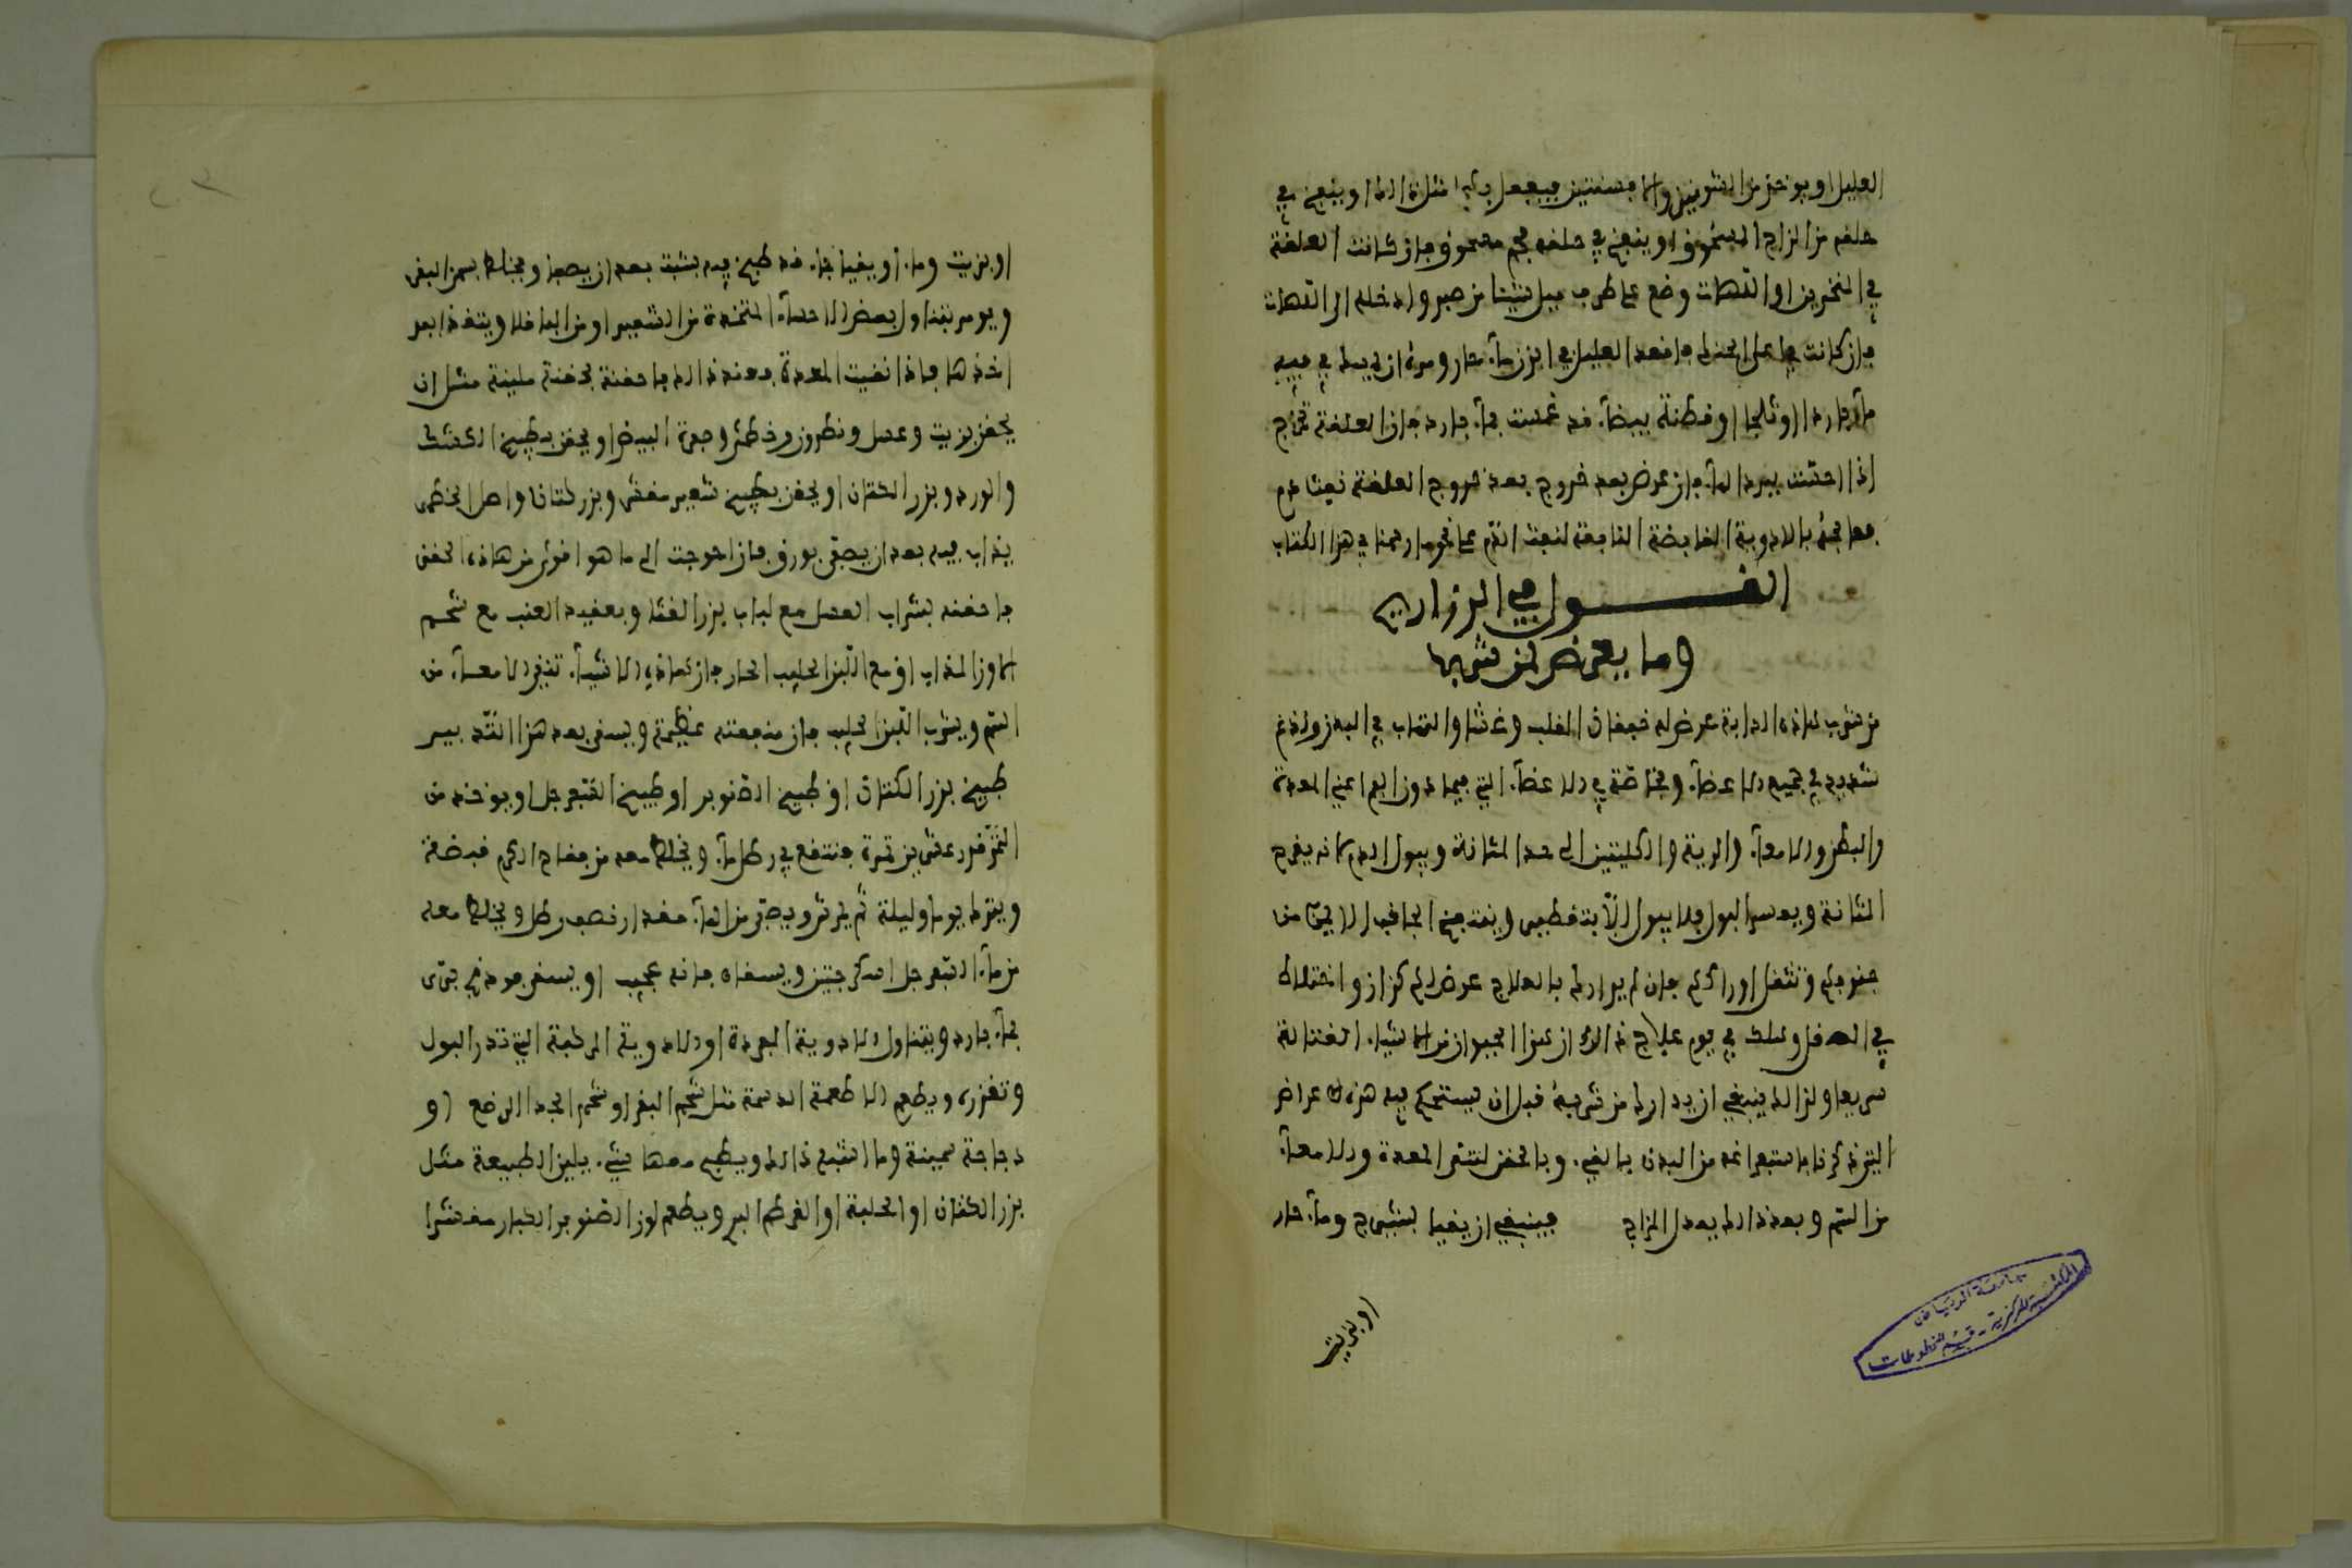 العليل او يوخذ من الشونيز والافسنتين فيفعل به مثل ذالك او ينفخ في
حلقه من الزاج المسحوق او ينفخ في حلقه فحم مسحوق فان كانت العلقة
في المنخرين او اللهات وضع على طرف ميل شيئا من صبر وادخله الى اللهات
فان كانت في اعلى الحنك فاقعد العليل في ابزن ماء حار ومره ان يمسك في فيه
ماء باردا او ثلجا او قطنة بيضاء قد غمست بماء بارد فان العلقة تخرج
اذا احست ببرد الماء فان عرض بعد خروج بعد خروج العلقة نفث دم
فعالجه بالادوية القابضة النافعة لنفث الدم على نحو ما رسمنا في هذا الكتاب
القول في الذراريح
وما يعرض لمن شربها
من شرب هاذه الدابة عرض له خفقان القلب وغثا والتهاب في البدن ولذع
شديد في جميع الاعضاء وخاصة في الاعضاء التي فيما دون الفم اعني المعدة
والبطن والامعاء والرية والكليتين الى حد المثانة ويبول الدم لانه يقرح
المثانة ويعسر البول فلا يبول الا بتقطير وينتفخ الجانب الايمن من
جنوبهم وتثقل اوراكهم فان لم يدارك بالعلاج عرض لهم كزاز واختلاط
في العقل وهلك في يوم علاج ذالك ان هذا الحيوان من الاشياء القتالة
سريعا ولذالك ينبغي ان يدارك من شربه قبل ان يستحكم فيه هذه الاعراض
التي ذكرنا باستفراغه من البدن بالقيء وبالحقن لتنقى المعدة والامعاء
من السم وبعد ذالك يعدل المزاج فينبغي ان يقيا بشيرج وماء حار
او بزيت
او بزيت وماء او يقيا بماء قد طبخ فيه شبت بعد ان يصفا ويخلط بسمن البقر
ويومر بتناول بعض الاحساء المتخذة من الشعير او من الباقلا ويتقذا بعد
اخذها فاذا نقيت المعدة فعند ذالك فاحقنه بحقنة ملينة مثل ان
يحقن بزيت وعسل ونطرون وخطمى وصفرة البيض او يحقن بطبيخ الكشك
والورد وبزر الكتان او يحقن بطبيخ شعير مقشر وبزر كتان واصل الخطمى
يذاب فيه بعد ان يصفى بورق فان احوجت الى ما هو اقوى من هاذه الحقن
فاحقنه بشراب العسل مع لباب بزر القثا وبعقيد العنب مع شحم
الاوز المذاب او مع اللبن الحليب الحار فان هاذه الاشياء تنقي الامعاء من
السم ويشرب اللبن الحليب فان منفعته عظيمة ويسقى بعد هذا التدبير
طبيخ بزر الكتان او طبيخ الصنوبر او طبيخ السفرجل او يوخذ من
التمر قدر عشرين تمرة فتنقع في رطل ماء ويخلط معه من فقاح الكرم قبضة
ويترك يوما وليلة ثم يمرس ويصفى من الماء مقدار نصف رطل ويخلط معه
من ماء السفرجل اسكرجتين ويسقاه فانه عجيب او يسقى فودنج بري
بماء بارد ويتناول الادوية المبردة او الادوية المركبة التي تدر البول
وتغزره ويطعم الاطعمة الدسمة مثل شحم البقر او شحم الجدا الرضع او
دجاجة سمينة وما اشبه ذالك ويطبخ معها شيء يلين الطبيعة مثل
بزر الكتان او الحلبة او القرطم البري ويطعم لوز الصنوبر الكبار مقشرا
جامعة الرياض
المكتبة المركزية - قسم المخطوطات